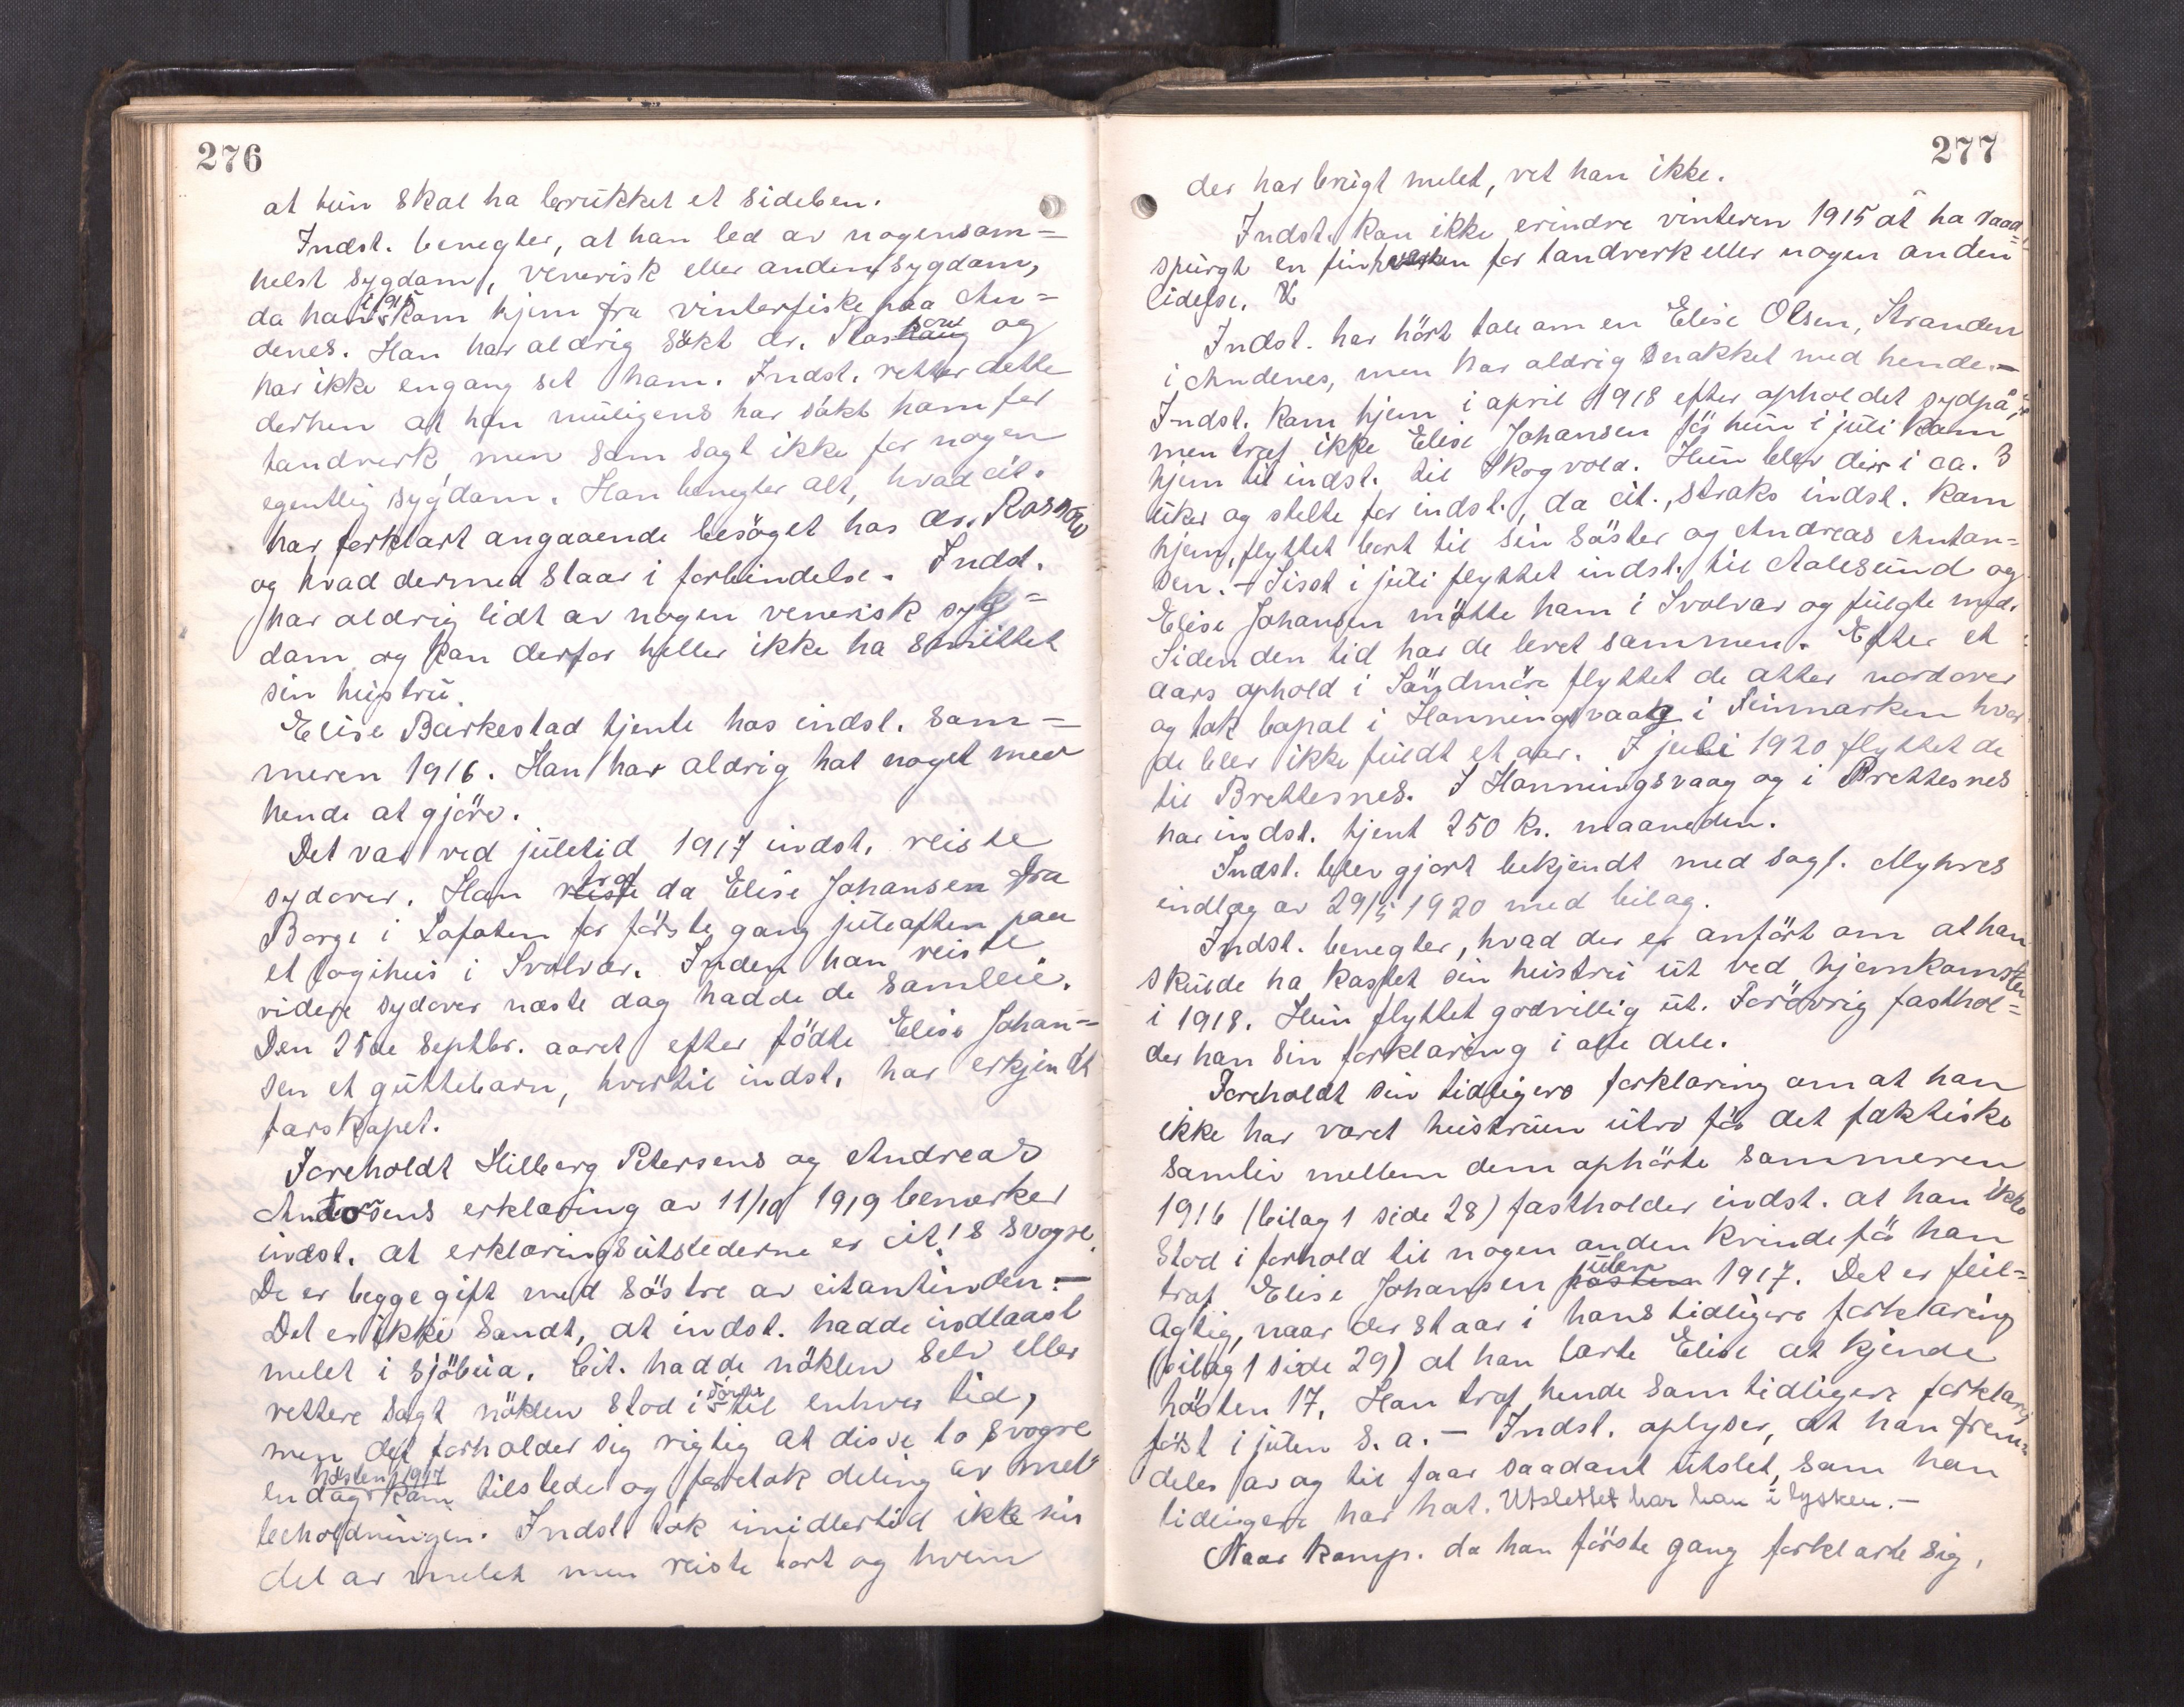 276
at hun skal ha brukket et sideben.
Indst. benegter, at han led av nogensom=
helst sygdom, venerisk eller anden sygdom,
da han i 1915 kom hjem fra vinterfiske paa An=
denes. Han har aldrig søkt dr. og
har ikke engang set ham. Indst. retter dette
derhen at han muligens har søkt ham for
tandverk, men som sagt ikke for nogen
egentlig sygdom. Han benegter alt, hvad cit.
har forklart angaaende besøget hos dr.
og hvad dermed staar i forbindelse. Indst.
har aldrig lidt av nogen venerisk syg=
dom og kan derfor heller ikke ha smittet
sin hustru.
Elise Barkestad tjente hos indst. som=
meren 1916. Han har aldrig hat noget med
hende at gjøre.
Det var ved juletid 1917 indst. reiste
sydover. Han reiste traf da Elise Johansen fra
Borge i Lofoten for første gang juleaften paa
et logihus i Svolvær. Inden han reiste
videre sydover næste dag hadde de samleie.
Den 25de septbr. aaret efter fødte Elise Johan=
sen et guttebarn, hvortil indst. har erkjendt
farskapet.
Foreholdt Hilberg Petersens og Andreas
Antonsens erklæring av 11/10 1919 bemerker
indst. at erklæringsutstederne er cit!s svogre.
De er begge gift med søstre av citantinden.—
Det er ikke sandt, at indst. hadde indlaast
melet i sjøbua. Cit. hadde nøklen selv eller
rettere sagt nøklen stod i døren til enhver tid,
men det forholder sig rigtig at disse to svogre
en dag høsten 1917 kom tilstede og foretok deling av mel=
beholdningen. Indst. tok imidlertid ikke sin
del av melet men reiste bort og hvem
277
der har brugt melet, vet han ikke.
Indst. kan ikke erindre vinteren 1915 at ha raad=
spurgt en for tandverk eller nogen anden
lidelse.
Indst. har hørt tale om en Elise Olsen, Stranden
i Andenes, men har aldrig snakket med hende.—
Indst. kom hjem i april 1918 efter opholdet sydpå,
men traf ikke Elise Johansen før hun i juli kom
hjem til indst. til Skogvold. Hun blev der i ca. 3
uker og stelte for indst., da cit., straks indst. kom
hjem, flyttet bort til sin søster og Andreas Anton=
sen.— Sisst i juli flyttet indst. til Aalesund og
Elise Johansen møtte ham i Svolvær og fulgte med.
Siden den tid har de levet sammen. Efter et
aars ophold i Søndmøre flyttet de atter nordover
og tok bopæl i Honningsvaag i Finmarken hvor
de blev ikke fuldt et aar. I juli 1920 flyttet de
til Brettesnes. I Honningsvaag og i Brettesnes
har indst. tjent 250 kr. maaneden.
Indst. blev gjort bekjendt med sagf. Myhres
indlæg av 29/5 1920 med bilag.
Indst. benegter, hvad der er anført om at han
skulde ha kastet sin hustru ut ved hjemkomsten
i 1918. Hun flyttet godvillig ut. Forøvrig fasthol=
der han sin forklaring i alle dele.
Foreholdt sin tidligere forklaring om at han
ikke har været hustruen utro før det faktiske
samliv mellem dem ophørte sommeren
1916 (bilag 1 side 28) fastholder indst. at han ikke
stod i forhold til nogen anden kvinde før han
traf Elise Johansen høsten julen 1917. Det er feil=
agtig, naar der staar i hans tidligere forklaring
(bilag 1 side 29) at han lærte Elise at kjende
høsten 17. Han traf hende som tidligere forklaring
først i julen s. a.— Indst. oplyser, at han frem=
deles av og til faar saadant utslet, som han
tidligere har hat. Utslettet har han i lysken.—
Naar komp. da han første gang forklarte sig,